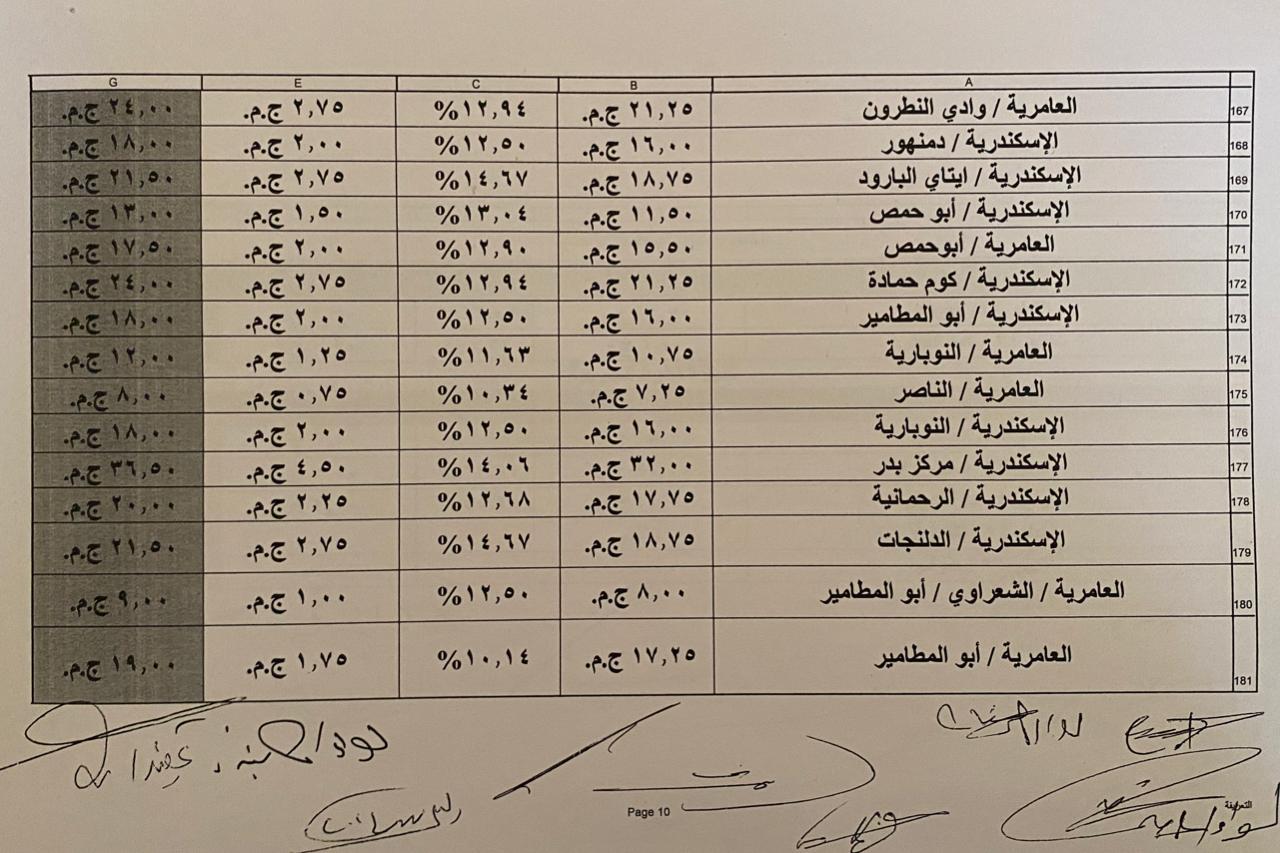 A B C E G
167 العامرية / وادي النطرون ٢١,٢٥ ج.م. ١٢,٩٤% ٢,٧٥ ج.م. ٢٤,٠٠ ج.م.
168 الإسكندرية / دمنهور ١٦,٠٠ ج.م. ١٢,٥٠% ٢,٠٠ ج.م. ١٨,٠٠ ج.م.
169 الإسكندرية / ايتاي البارود ١٨,٧٥ ج.م. ١٤,٦٧% ٢,٧٥ ج.م. ٢١,٥٠ ج.م.
170 الإسكندرية / أبو حمص ١١,٥٠ ج.م. ١٣,٠٤% ١,٥٠ ج.م. ١٣,٠٠ ج.م.
171 العامرية / أبوحمص ١٥,٥٠ ج.م. ١٢,٩٠% ٢,٠٠ ج.م. ١٧,٥٠ ج.م.
172 الإسكندرية / كوم حمادة ٢١,٢٥ ج.م. ١٢,٩٤% ٢,٧٥ ج.م. ٢٤,٠٠ ج.م.
173 الإسكندرية / أبو المطامير ١٦,٠٠ ج.م. ١٢,٥٠% ٢,٠٠ ج.م. ١٨,٠٠ ج.م.
174 العامرية / النوبارية ١٠,٧٥ ج.م. ١١,٦٣% ١,٢٥ ج.م. ١٢,٠٠ ج.م.
175 العامرية / الناصر ٧,٢٥ ج.م. ١٠,٣٤% ٠,٧٥ ج.م. ٨,٠٠ ج.م.
176 الإسكندرية / النوبارية ١٦,٠٠ ج.م. ١٢,٥٠% ٢,٠٠ ج.م. ١٨,٠٠ ج.م.
177 الإسكندرية / مركز بدر ٣٢,٠٠ ج.م. ١٤,٠٦% ٤,٥٠ ج.م. ٣٦,٥٠ ج.م.
178 الإسكندرية / الرحمانية ١٧,٧٥ ج.م. ١٢,٦٨% ٢,٢٥ ج.م. ٢٠,٠٠ ج.م.
179 الإسكندرية / الدلنجات ١٨,٧٥ ج.م. ١٤,٦٧% ٢,٧٥ ج.م. ٢١,٥٠ ج.م.
180 العامرية / الشعراوي / أبو المطامير ٨,٠٠ ج.م. ١٢,٥٠% ١,٠٠ ج.م. ٩,٠٠ ج.م.
181 العامرية / أبو المطامير ١٧,٢٥ ج.م. ١٠,١٤% ١,٧٥ ج.م. ١٩,٠٠ ج.م.
التعريفة
Page 10